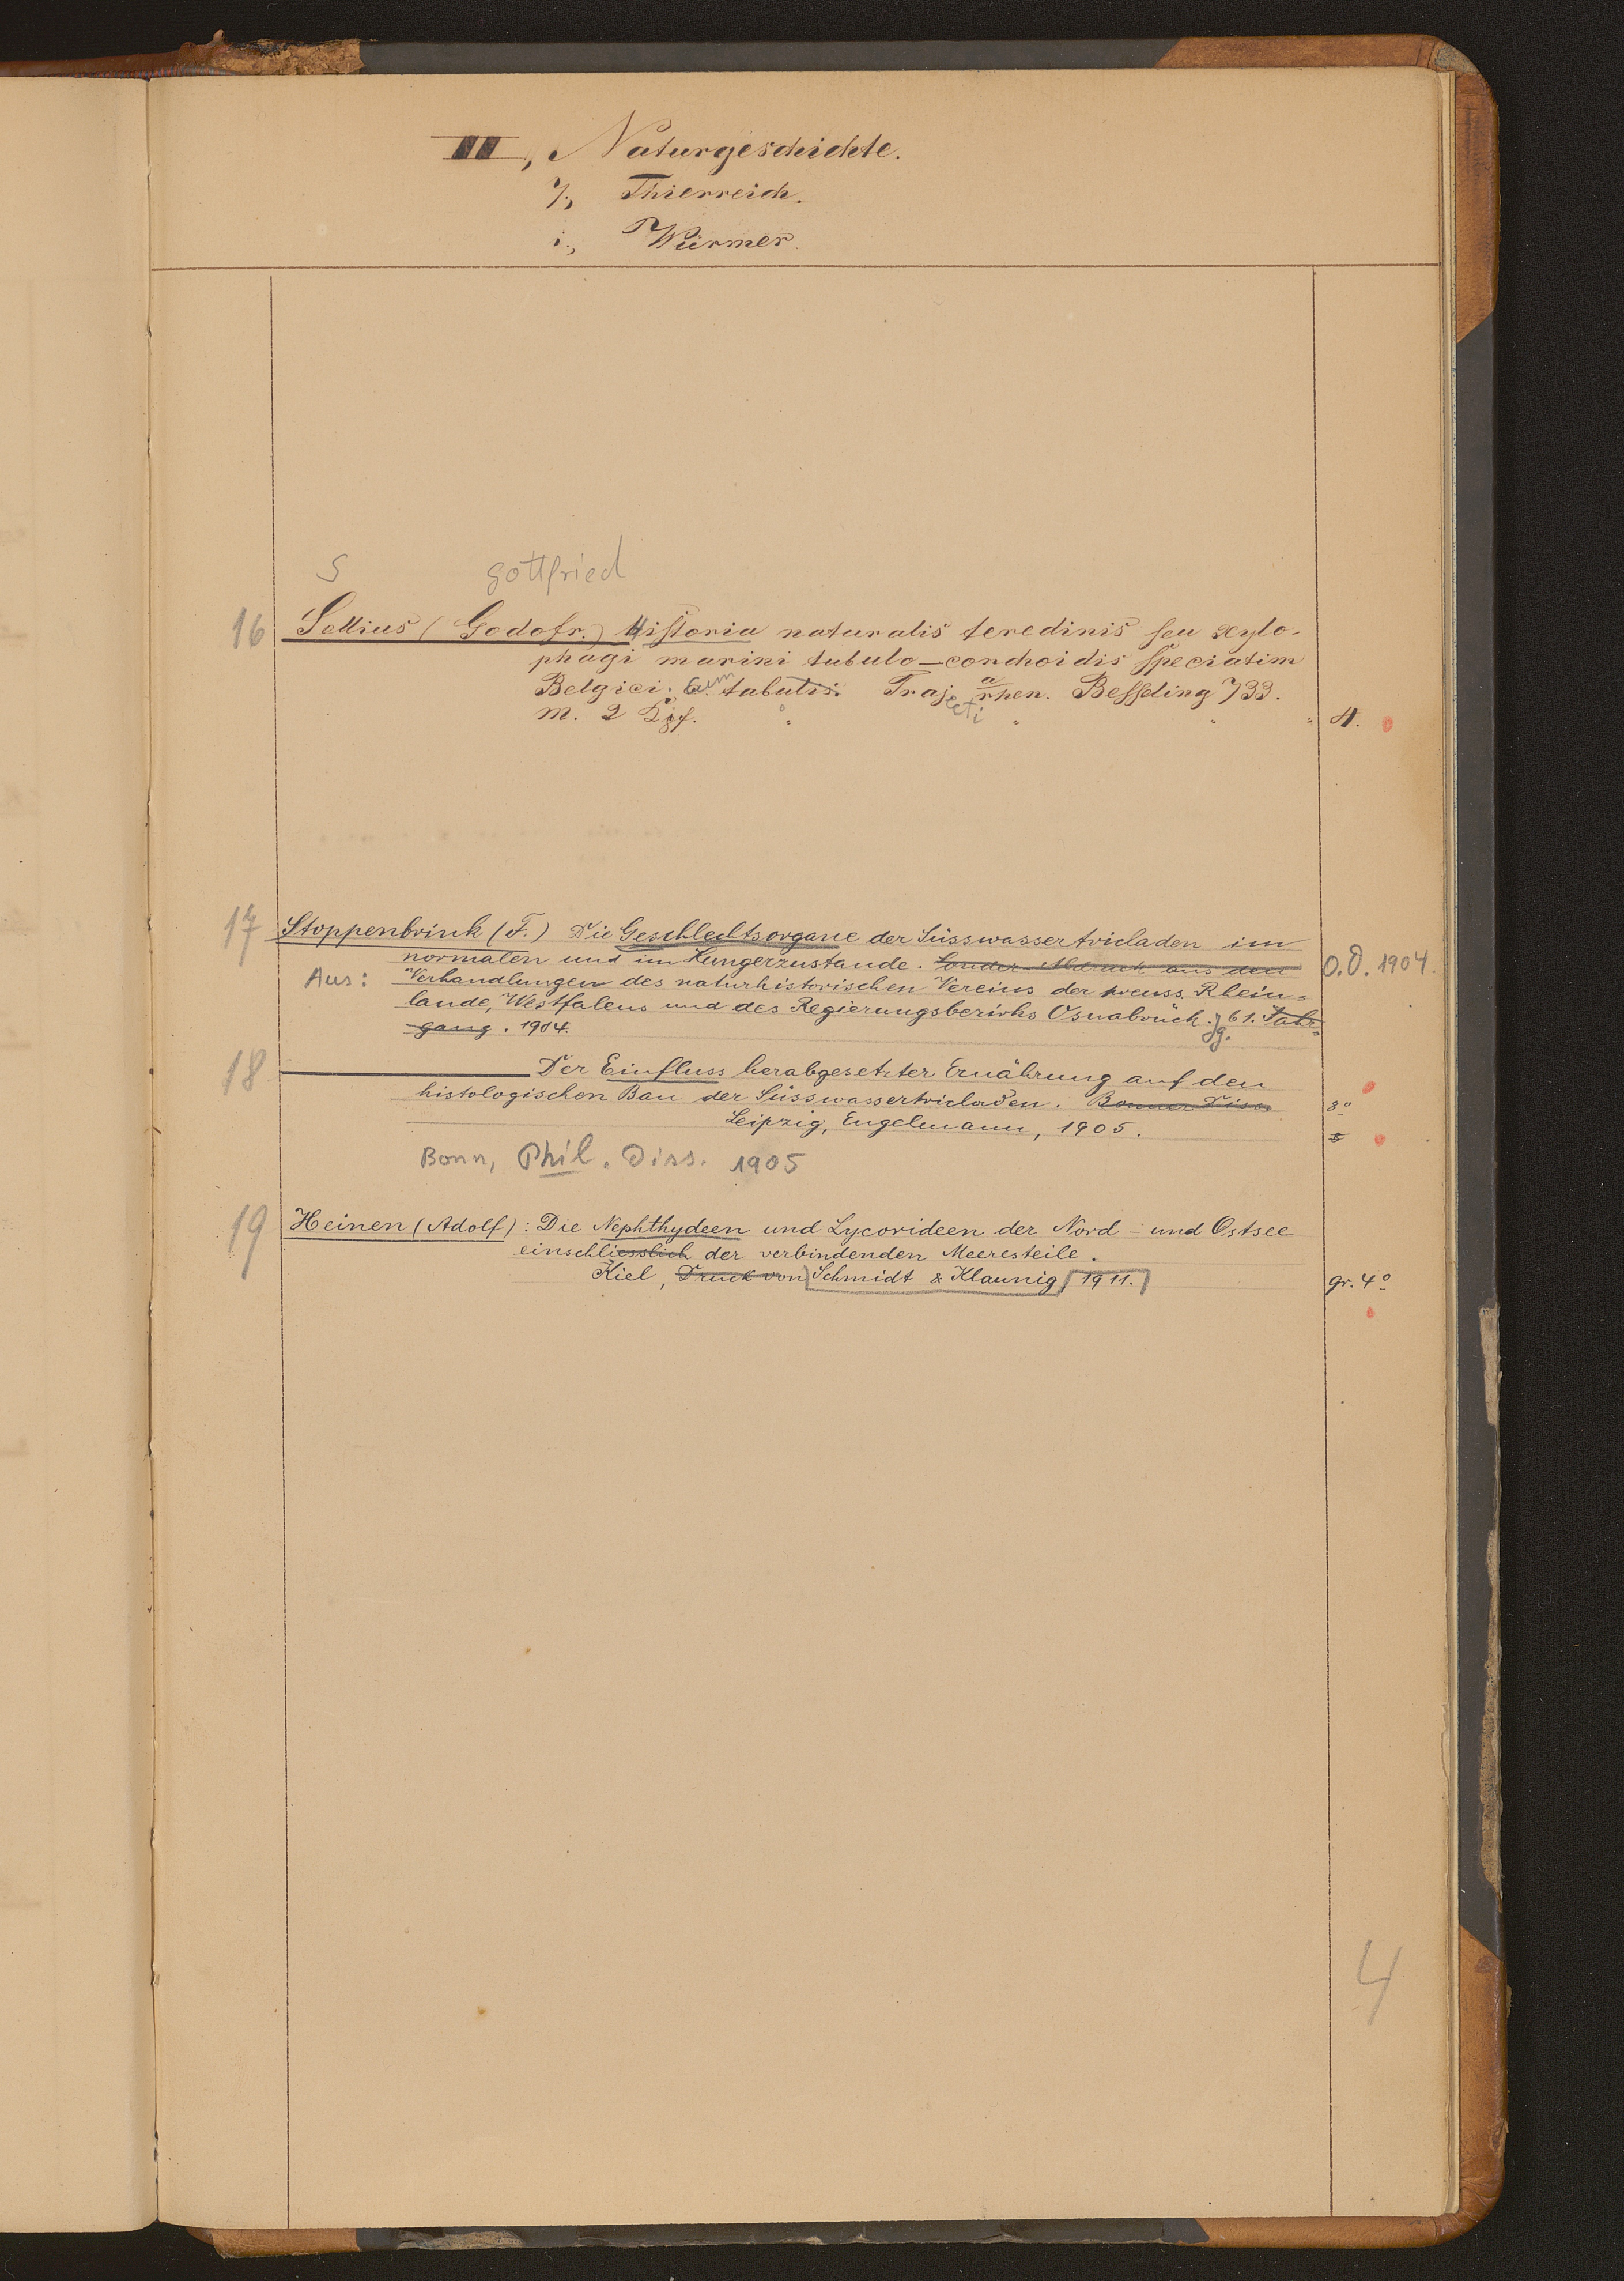 III, Naturgeschichte.
7., Thierreich.
i., Würmer.
S gottfried
16 Sellius (Godofr.) Historia naturalis teredinis seu xylo-
phagi marini tubulo-conchoidis speciatim
Belgici. Cum tabulis. Trajecti a/rhen. Besseling 733.
m. 2 4.
17 Stoppenbrink (F.) Die Geschlechtsorgane der Süsswassertricladen im
normalen und im Hungerzustande. Sonder-Abdruck aus den O. O. 1904.
Aus: Verhandlungen des naturhistorischen Vereins der preuss. Rhein-
lande, Westfalens und des Regierungsbezirks Osnabrück. Jg. 61. Jahr-
gang. 1904.
18 Der Einfluss herabgesetzter Ernährung auf den
histologischen Bau der Süsswassertricladen. Bonner Diss. 8º
Leipzig, Engelmann, 1905.
Bonn, Phil. Diss. 1905
19 Heinen (Adolf): Die Nephthydeen und Lycorideen der Nord- und Ostsee
einschliesslich der verbindenden Meeresteile.
Kiel, Druck von Schmidt & Klaunig [1911.] gr. 4º
4